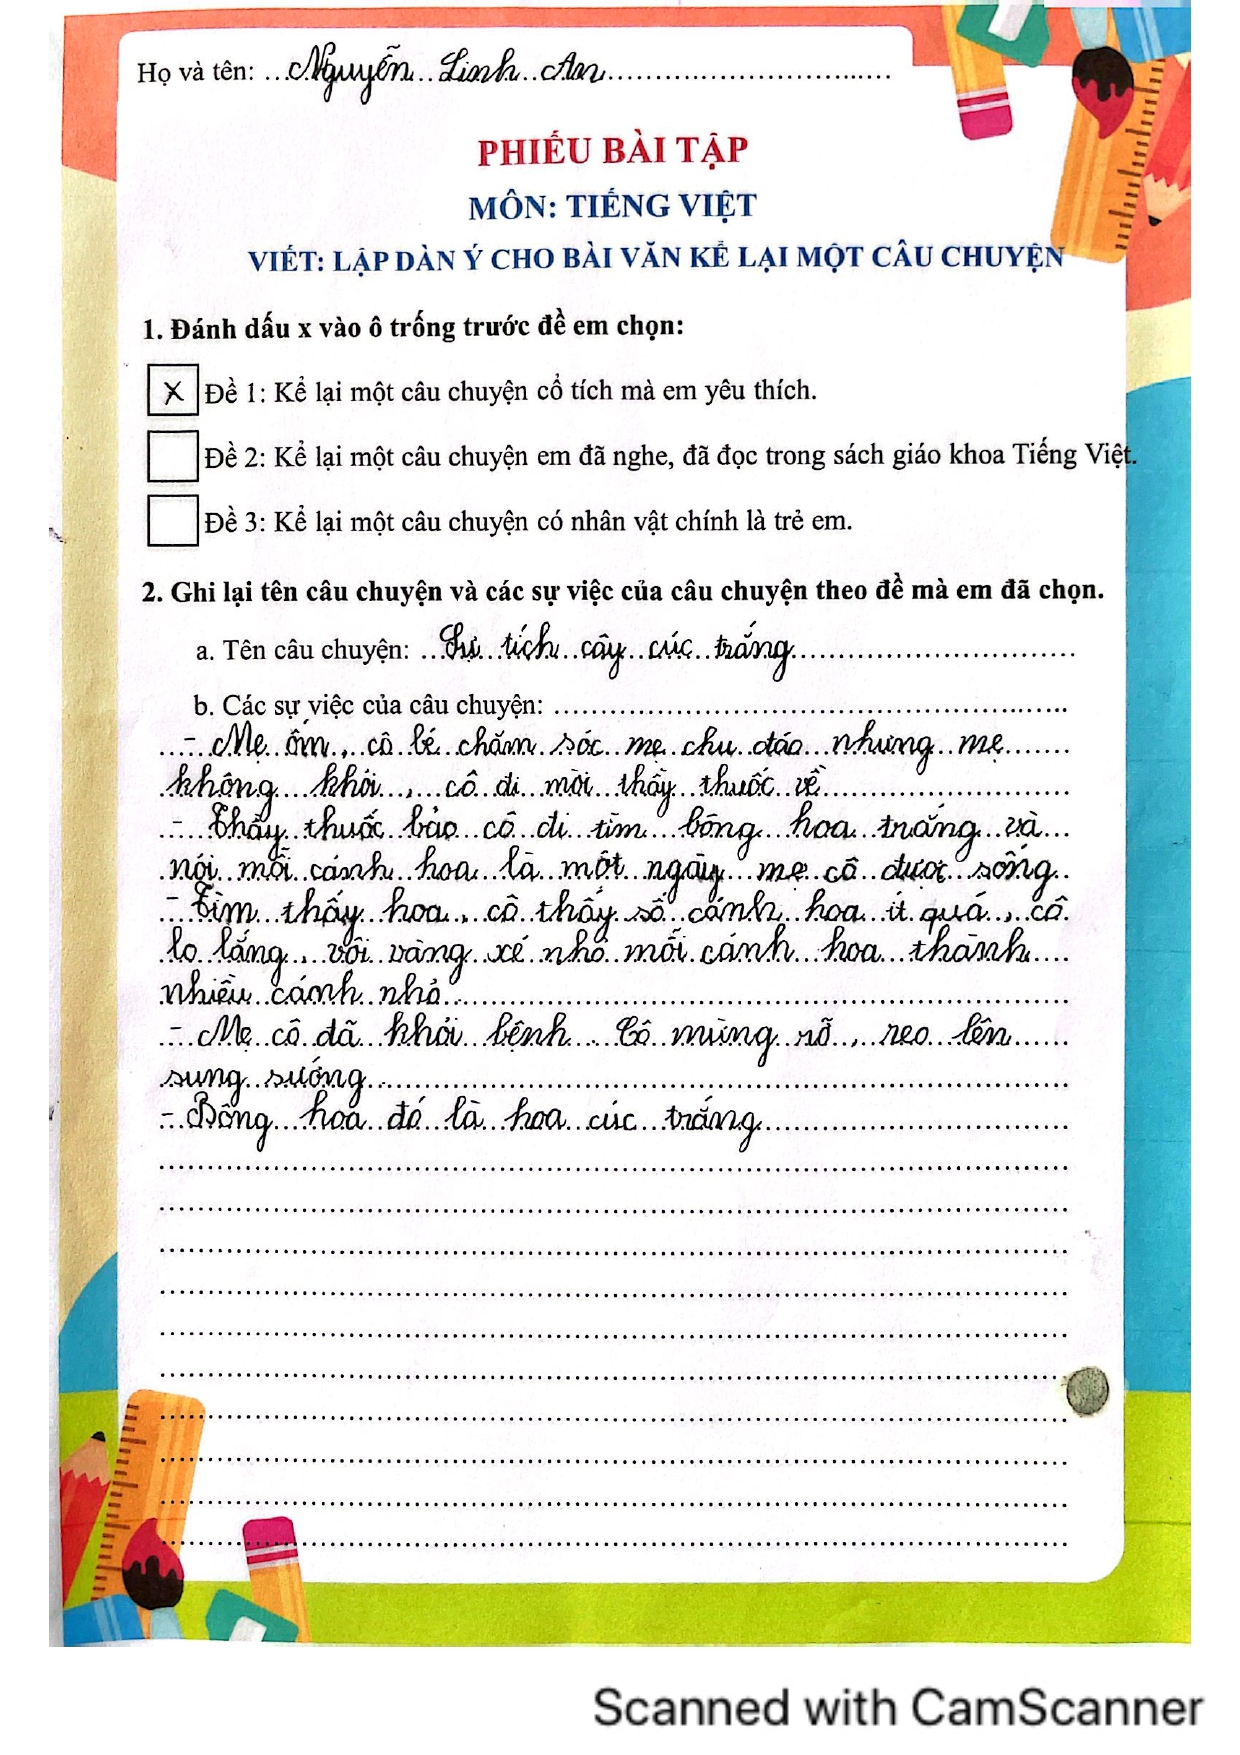 Họ và tên: Nguyễn Linh An
PHIẾU BÀI TẬP
MÔN: TIẾNG VIỆT
VIẾT: LẬP DÀN Ý CHO BÀI VĂN KỂ LẠI MỘT CÂU CHUYỆN
1. Đánh dấu x vào ô trống trước đề em chọn:
x Đề 1: Kể lại một câu chuyện cổ tích mà em yêu thích.
Đề 2: Kể lại một câu chuyện em đã nghe, đã đọc trong sách giáo khoa Tiếng Việt.
Đề 3: Kể lại một câu chuyện có nhân vật chính là trẻ em.
2. Ghi lại tên câu chuyện và các sự việc của câu chuyện theo đề mà em đã chọn.
a. Tên câu chuyện: Sự tích cây cúc trắng
b. Các sự việc của câu chuyện:
- Mẹ ốm, cô bé chăm sóc mẹ chu đáo nhưng mẹ
không khỏi, cô đi mời thầy thuốc về
- Thầy thuốc bảo cô đi tìm bông hoa trắng và
nói mỗi cánh hoa là một ngày mẹ cô được sống
- Tìm thấy hoa, cô thấy số cánh hoa ít quá, cô
lo lắng, vội vàng xé nhỏ mỗi cánh hoa thành
nhiều cánh nhỏ.
- Mẹ cô đã khỏi bệnh. Cô mừng rỡ, reo lên
sung sướng.
- Bông hoa đó là hoa cúc trắng
Scanned with CamScanner